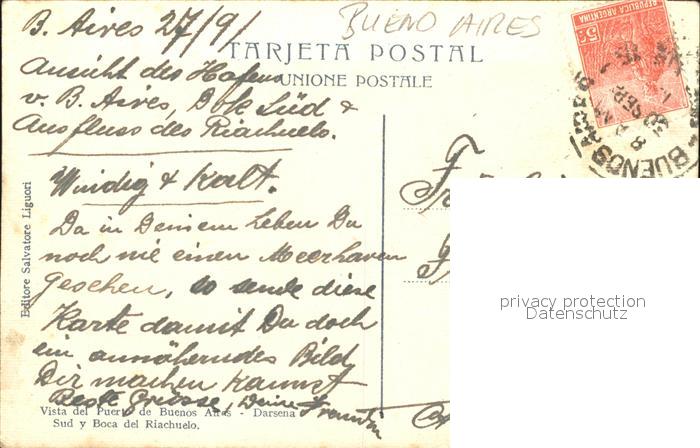 B. Aires 27/9/
BUENO AIRES
TARJETA POSTAL
UNIONE POSTALE
REPUBLICA ARGENTINA
5
BUENOS AIRES
Ansicht des Hafens
v. B. Aires, Dok Süd &
Ausfluss des Riachuelo.
Windig & Kalt.
Da in Deinem Leben Du
noch nie einen Meerhaven
gesehen, so sende diese
Karte damit Du doch
ein annäherndes Bild
Dir machen kannst
Beste Grüsse, Deine
Editore Salvatore Liguori
Vista del Puerto de Buenos Aires - Darsena
Sud y Boca del Riachuelo.
privacy protection
Datenschutz